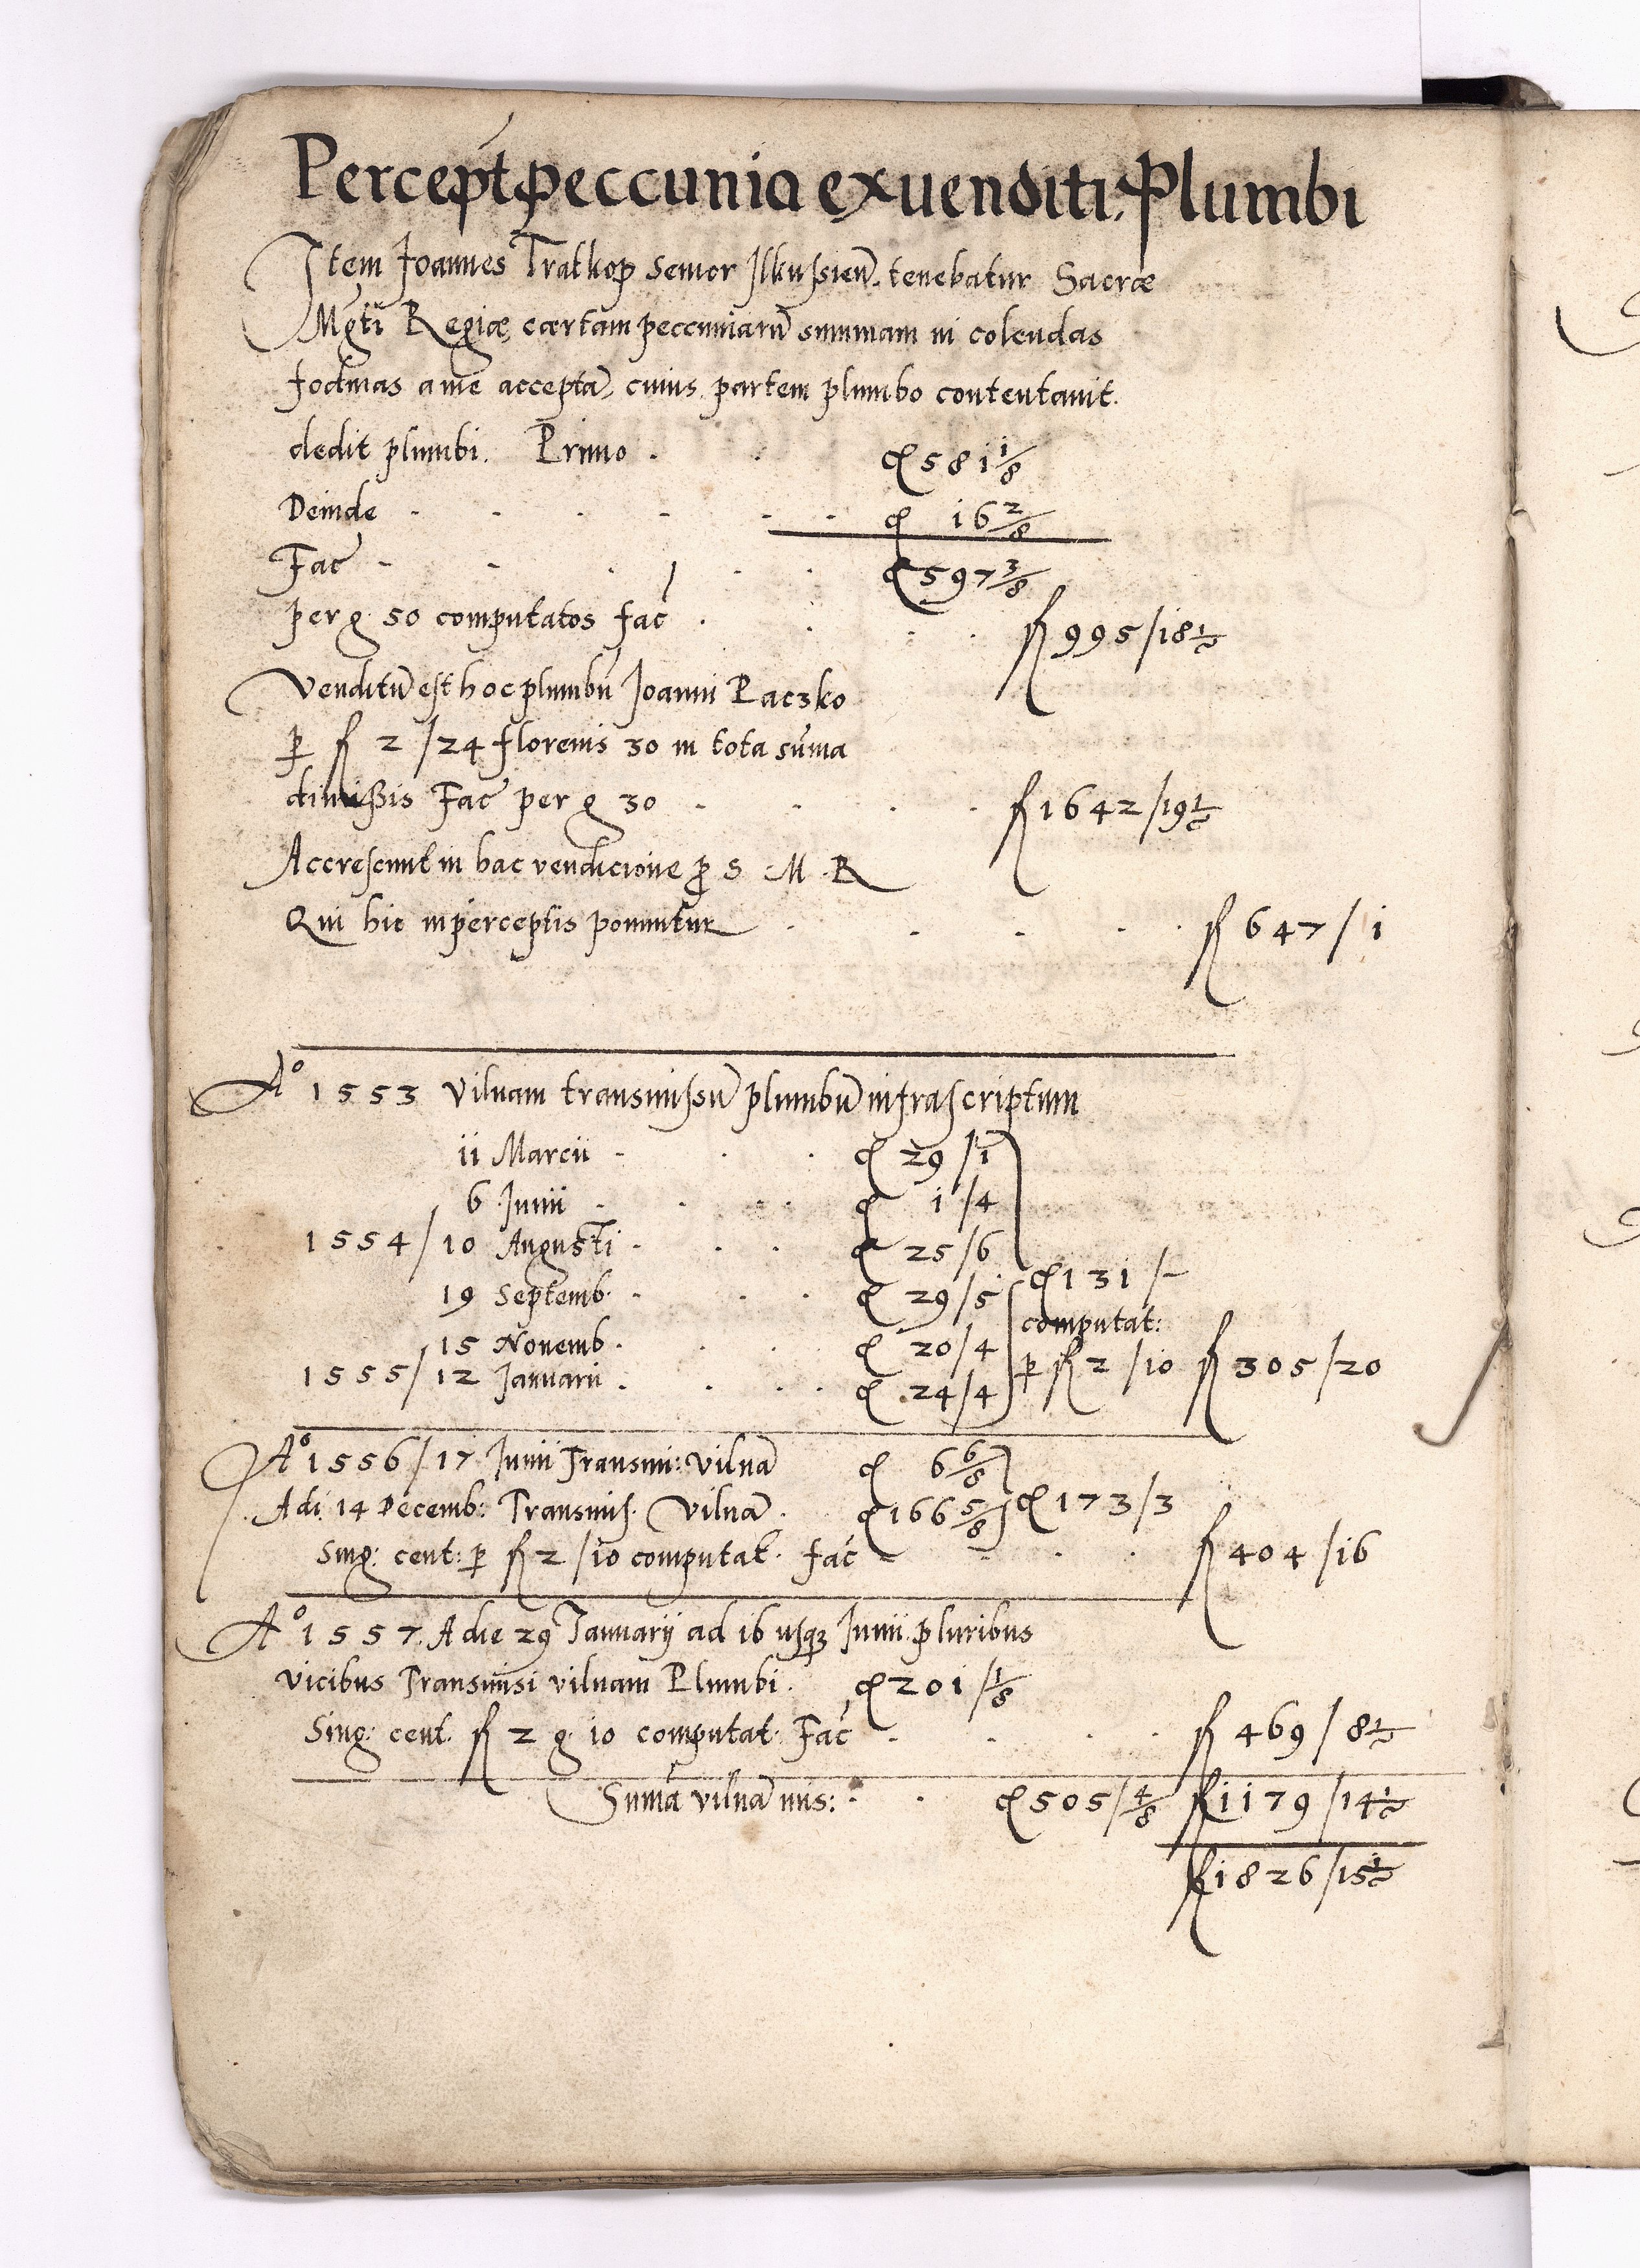 Percept peccunia ex venditi. Plumbi
Item Joannes Tratkop senior Ilkussien. tenebatur Sacræ
Mgti Regiæ cærtam peccuniarū summam in colendas
fodinas a me acceptā, cuius partem plumbo contentauit.
dedit plumbi. Primo . . ȼ 581 1/8
Deinde . . . . . . ȼ 16 2/8
Fac . . . . . ȼ 597 3/8
per g 50 computatos fac . . . . fl 995/18 ½
Venditū est hoc plumbū Joanni Paczko
p fl 2/24 florenis 30 in tota suma
dimißis Fac per g 30 . . . . fl 1642/19 ½
Accrescunt in hac vendicione pro S. M. R
Qui hic in perceptis ponuntur . . . . . fl 647/1
Aº 1553 Vilnam transmissū plumbū infrascriptum
11 Marcii . . . ȼ 29/1
6 Junii . . . ȼ 1/4
1554/10 Augusti . . . ȼ 25/6
ȼ 131/-
19 Septemb. . . . ȼ 29/5
computat:
15 Nouemb. . . ȼ 20/4
p fl 2/10 fl 305/20
1555/12 Januarii . . . ȼ 24/4
Aº 1556/17 Junii Transmi: vilnā ȼ 6 6/8
Adi. 14 Decemb: Transmis. Vilnā . ȼ 166 5/8 ȼ 173/3
Sing: cent: p fl 2/10 computat. fac . . . fl 404/16
Aº 1557. A die 29 Januarij ad 16 usqz Junii pluribus
vicibus Transmisi vilnam Plumbi. ȼ 201/1/8
Sing: cent. fl 2 g 10 computat. Fac . . . . fl 469/8 ½
Suma vilnā mis: . . ȼ 505/4/8 fl 1179/14 ½
fl 1826/15 ½